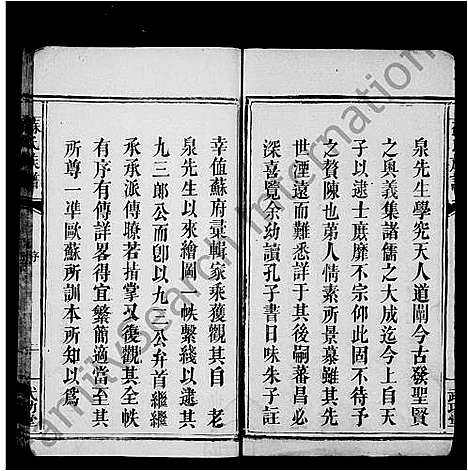 泉先生學究天人道闡今古發聖賢
之奧義集諸儒之大成迄今上自天
子以逮士庶靡不宗仰此固不待予
之贅陳也弟人情素所景慕雖其
世湮遠而難悉詳于其後嗣蕃昌必
深喜覽余幼讀孔子書日味朱子註
蘇氏族譜
序
武功堂
幸值蘇府彙輯家乘獲觀其自 老
泉先生以來繪圖一帙繫綫以逮其
九三郎公而卽以九三公弁首繼繼
承承派傳瞭若指掌又復觀其全帙
有序有傳詳畧得宜繁簡適當至其
所尊一準歐蘇所訓本所知以爲
amilySearch International